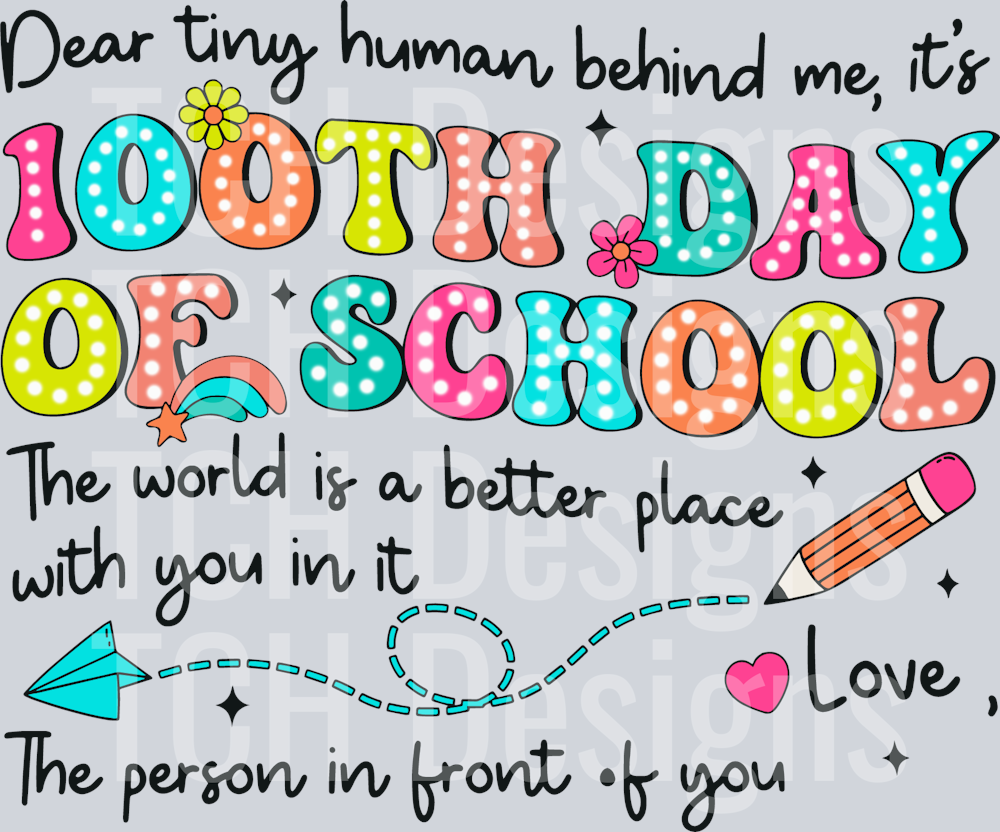 Dear tiny human behind me, it's
100TH DAY
OF SCHOOL
The world is a better place
with you in it
Love ,
The person in front of you
TCH Designs
TCH Designs
TCH Designs
TCH Designs